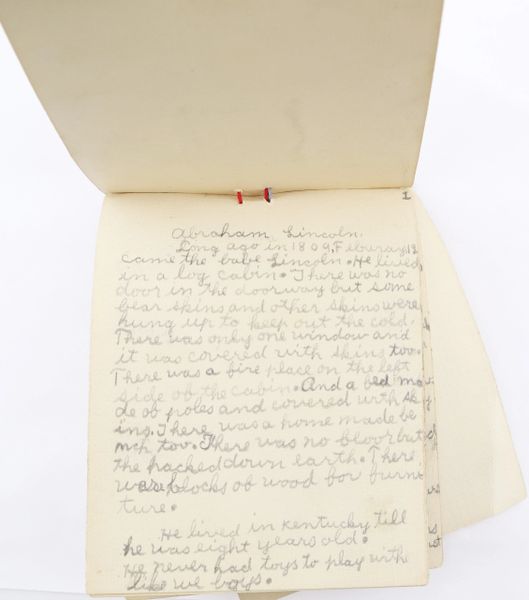 1
Abraham Lincoln.
Long ago in 1809, Feburary 12
came the babe Lincoln. He lived
in a log cabin. There was no
door in the doorway but some
bear skins and other skins were
hung up to keep out the cold.
There was only one window and
it was covered with skins too.
There was a fire place on the left
side of the cabin. And a bed ma
de of poles and covered with sk
ins. There was a home made be
nch too. There was no floor but
the packed down earth. There
was blocks of wood for furni
ture.
He lived in Kentucky till
he was eight years old.
He never had toys to play with
like we boys.